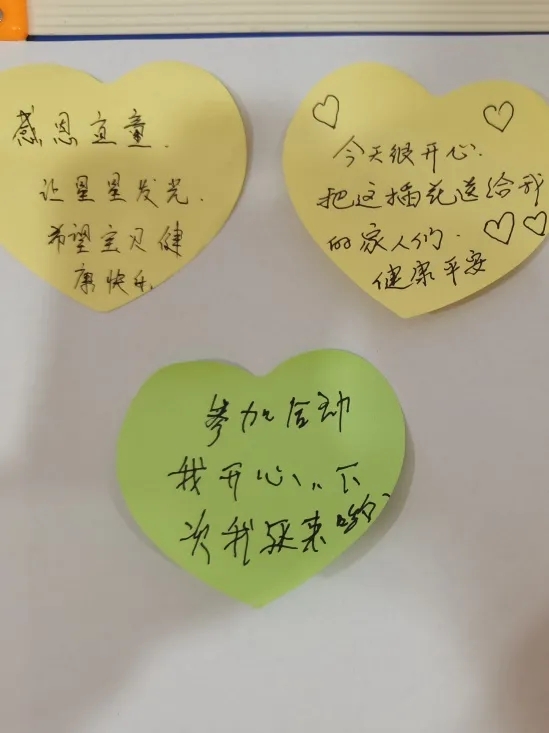 感恩宜童.
让星星发光.
希望宝贝健
康快乐.
今天很开心.
把这插花送给我
的家人们.
健康平安
参加合动
我开心,,,下
次我还来哟